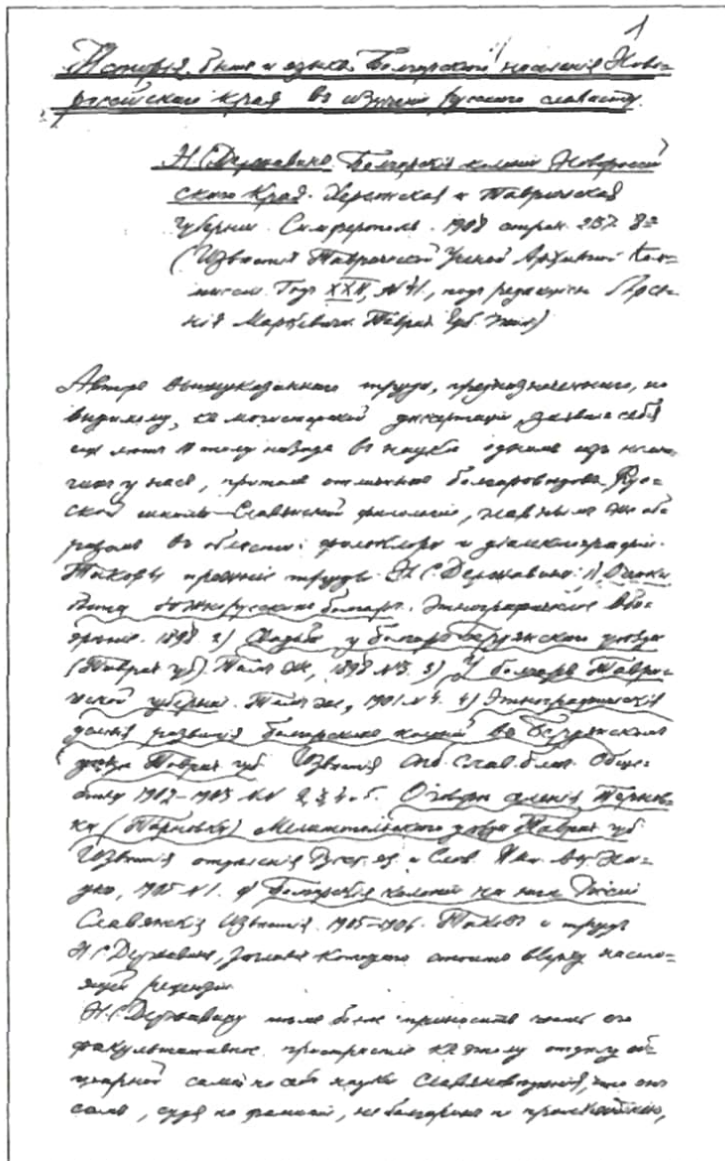 1
Исторія, бытъ и языкъ Болгарскаго населенія Ново-
россійскаго края въ изученіи русскаго слависта.
Н. С. Державинъ. Болгарскія колоніи Новороссій-
скаго Края. Херсонская и Таврическая
губерніи. Симферополь. 1908 стран. 237. 8º
(Извѣстія Таврической Ученой Архивной Ком-
миссіи. Годъ XXII, №41., подъ редакціею Арсе-
нія Маркевича. Таврич. Губ. Тип.)
Авторъ вышеуказаннаго труда, предназначеннаго, по
видимому, къ магистерской диссертаціи, заявилъ себя
еще лѣтъ тому назадъ въ наукѣ однимъ изъ немно-
гихъ у насъ, притомъ отличныхъ болгаровѣдовъ Рус-
ской школы Славянской филологіи, главнымъ же об-
разомъ въ области фольклора и діалектографіи.
Таковы прежніе труды Н. С. Державина: 1) Очерки
быта южнорусскихъ болгаръ. Этнографическое Обо-
зрѣніе. 1898. 2) Свадьба у болгаръ Бердянскаго уѣзда
(Таврич. губ.). Тамъ же, 1898 №3. 3) У болгаръ Таври-
ческой губерніи. Тамъ же, 1901 №4. 4) Этнографическія
развитія болгарскихъ колоній въ Бердянскомъ
уѣздѣ Таврич. губ. Извѣстія Спб. Слав. благ. Обще-
ства 1902–1903 №№ 2, 3, 4 и 5. О говорѣ селенія Тернов-
ка (Терновка) Мелитопольскаго уѣзда Таврич. губ.
Извѣстія отдѣленія Русск. яз. и Слов. Имп. Ак. На-
укъ, 1905 №1. Болгарскія колоніи на югѣ Россіи
Славянскія Извѣстія. 1905–1906. Таковъ и трудъ
Н. С. Державина, заглавіе котораго стоитъ вверху насто-
ящей рецензіи.
Н. С. Державину тѣмъ болѣе приноситъ честь его
факультативное пристрастіе къ этому отдѣлу об-
ширной самой по себѣ науки Славяновѣдѣнія, что онъ
самъ, судя по фамиліи, не болгаринъ по происхожденію,